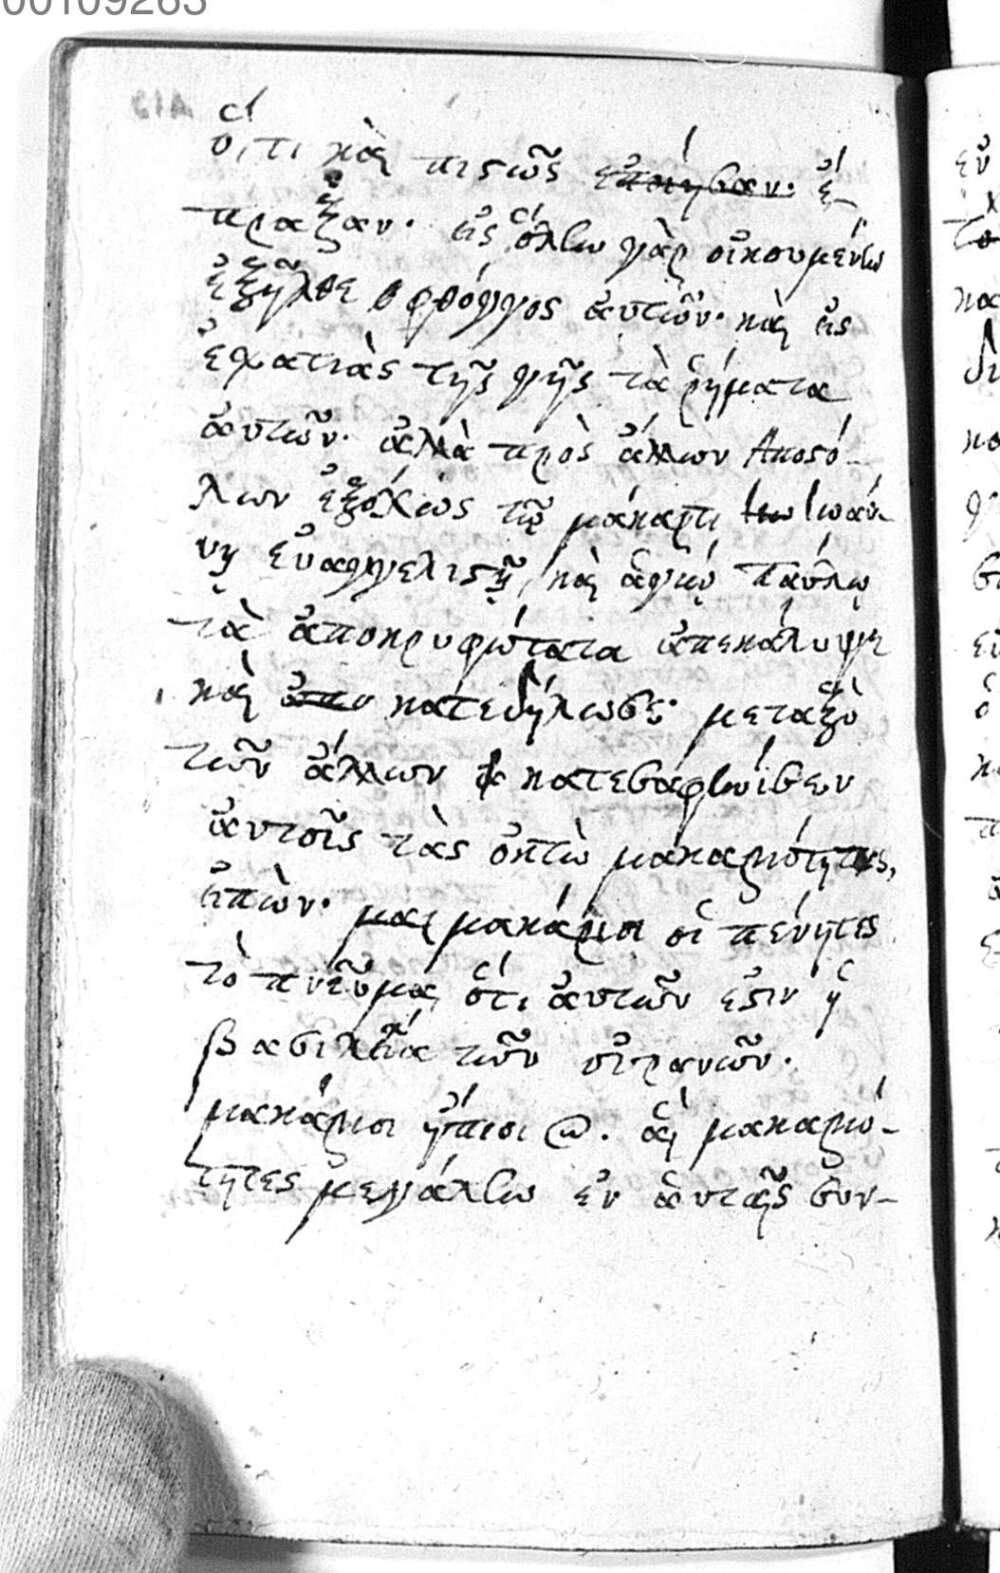 00109263
ὅ,τι καὶ πιστῶς ἐποίησαν. ἔ-
πραξαν. εἰς ὅλην γὰρ οἰκουμένην
ἐξῆλθε ὁ φθόγγος ἀυτῶν. καὶ εἰς
ἐσχατιὰς τῆς γῆς τὰ ῥήματα
ἀυτῶν. ἀλλὰ πρὸς ἄλλων Αποστό-
λων ἐξόχως τῷ μάκαρτι Ιω Ιωάν-
νῃ ἐυαγγελιστῇ, καὶ ἁγίῳ Παύλῳ
τὰ ἀποκρυφώτατα ἀπεκάλυψε
καὶ κατεδήλωσε. μεταξὺ
τῶν ἄλλων κατεσάφησεν
ἀυτοῖς τὰς ὀκτὼ μακαριότητας,
ἐιπὼν. μαι μακάριοι οἱ πένητες
τὸ πνεῦμα, ὅτι ἀυτῶν ἐστιν ἡ
βασιλεία τῶν οὐρανῶν.
μακάριοι ἤπιοι @. ἁι μακαριό-
τητες μεγάλην ἐν ἀυταῖς συν-
εὐ
κα
δι
κα